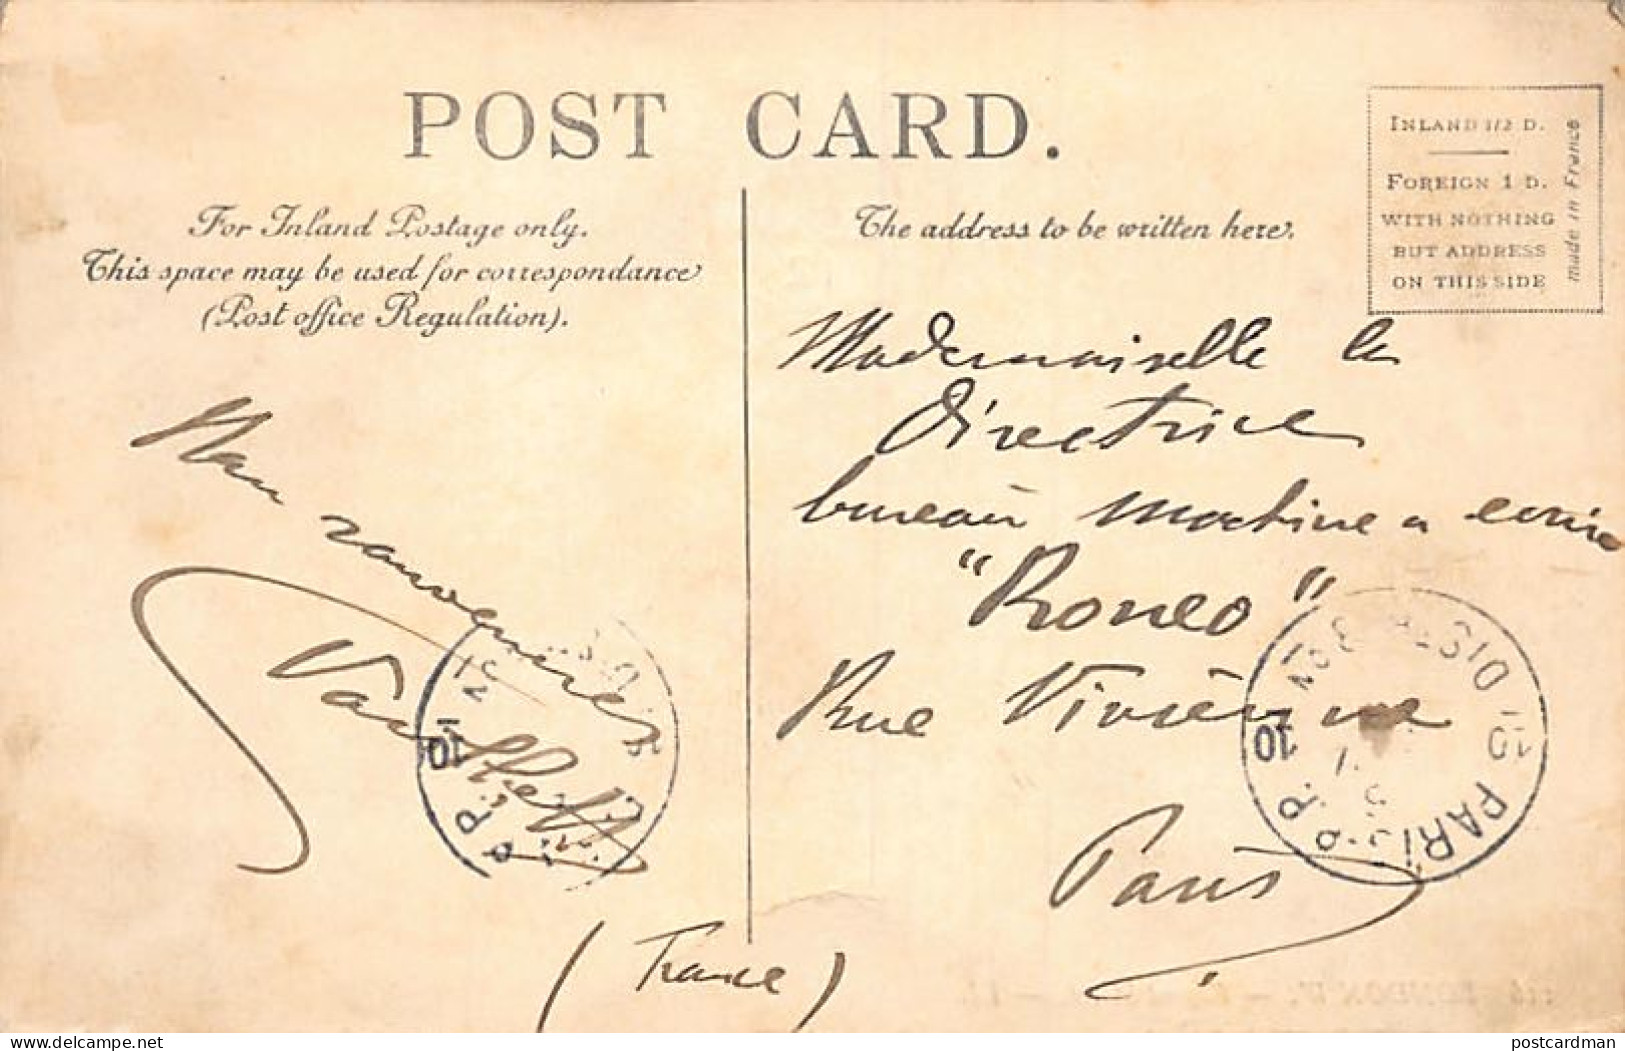 POST CARD.
For Inland Postage only.
This space may be used for correspondance
(Post office Regulation).
The address to be written here.
INLAND 1/2 D.
FOREIGN 1 D.
WITH NOTHING
BUT ADDRESS
ON THIS SIDE
made in France
Mademoiselle la
Directrice
bureau machine a ecrire
"Roneo"
Rue Vivienne
Paris
(France)
PARIS
P.P.
10
DIST
No 8
P.P.
10
LONDON
delcampe.net
postcardman